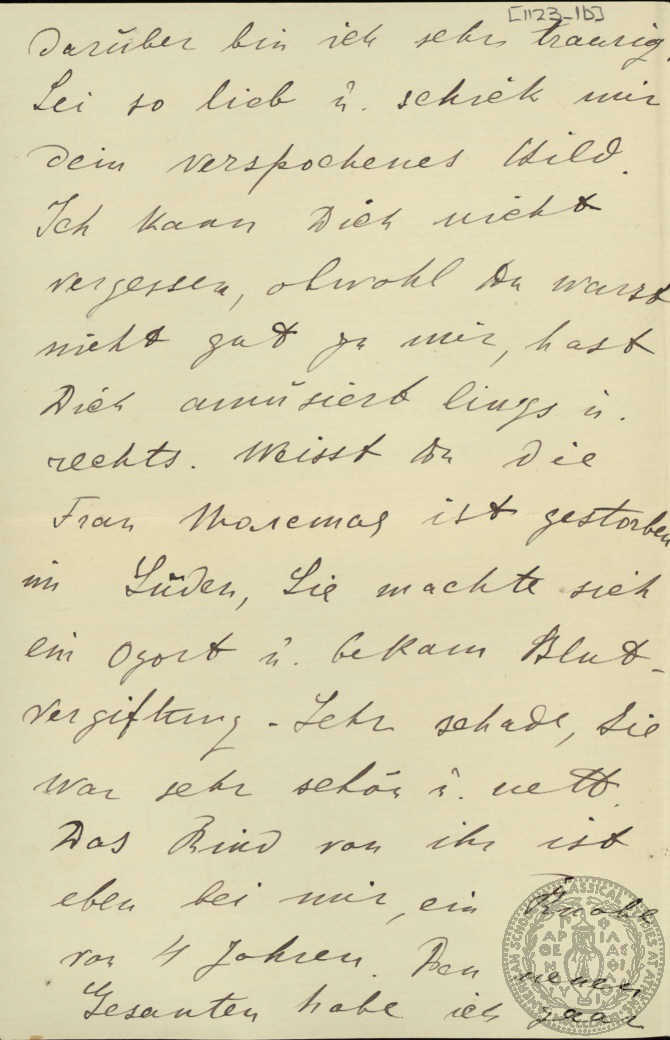 [1123-1b]
Darüber bin ich sehr traurig,
Sei so lieb u. schick mir
dein verspochenes Bild.
Ich kann Dich nicht
vergessen, obwohl Du warst
nicht gut zu mir, hast
Dich amüsiert lings u.
rechts. Weisst Du die
Frau ist gestorben
im Süden, Sie machte sich
ein u. bekam Blut-
vergiftung - Sehr schade, Sie
war sehr schön u. nett.
Das Kind von ihr ist
eben bei mir, ein Knabe
von 4 Jahren. Den neuen
Gesanten habe ich